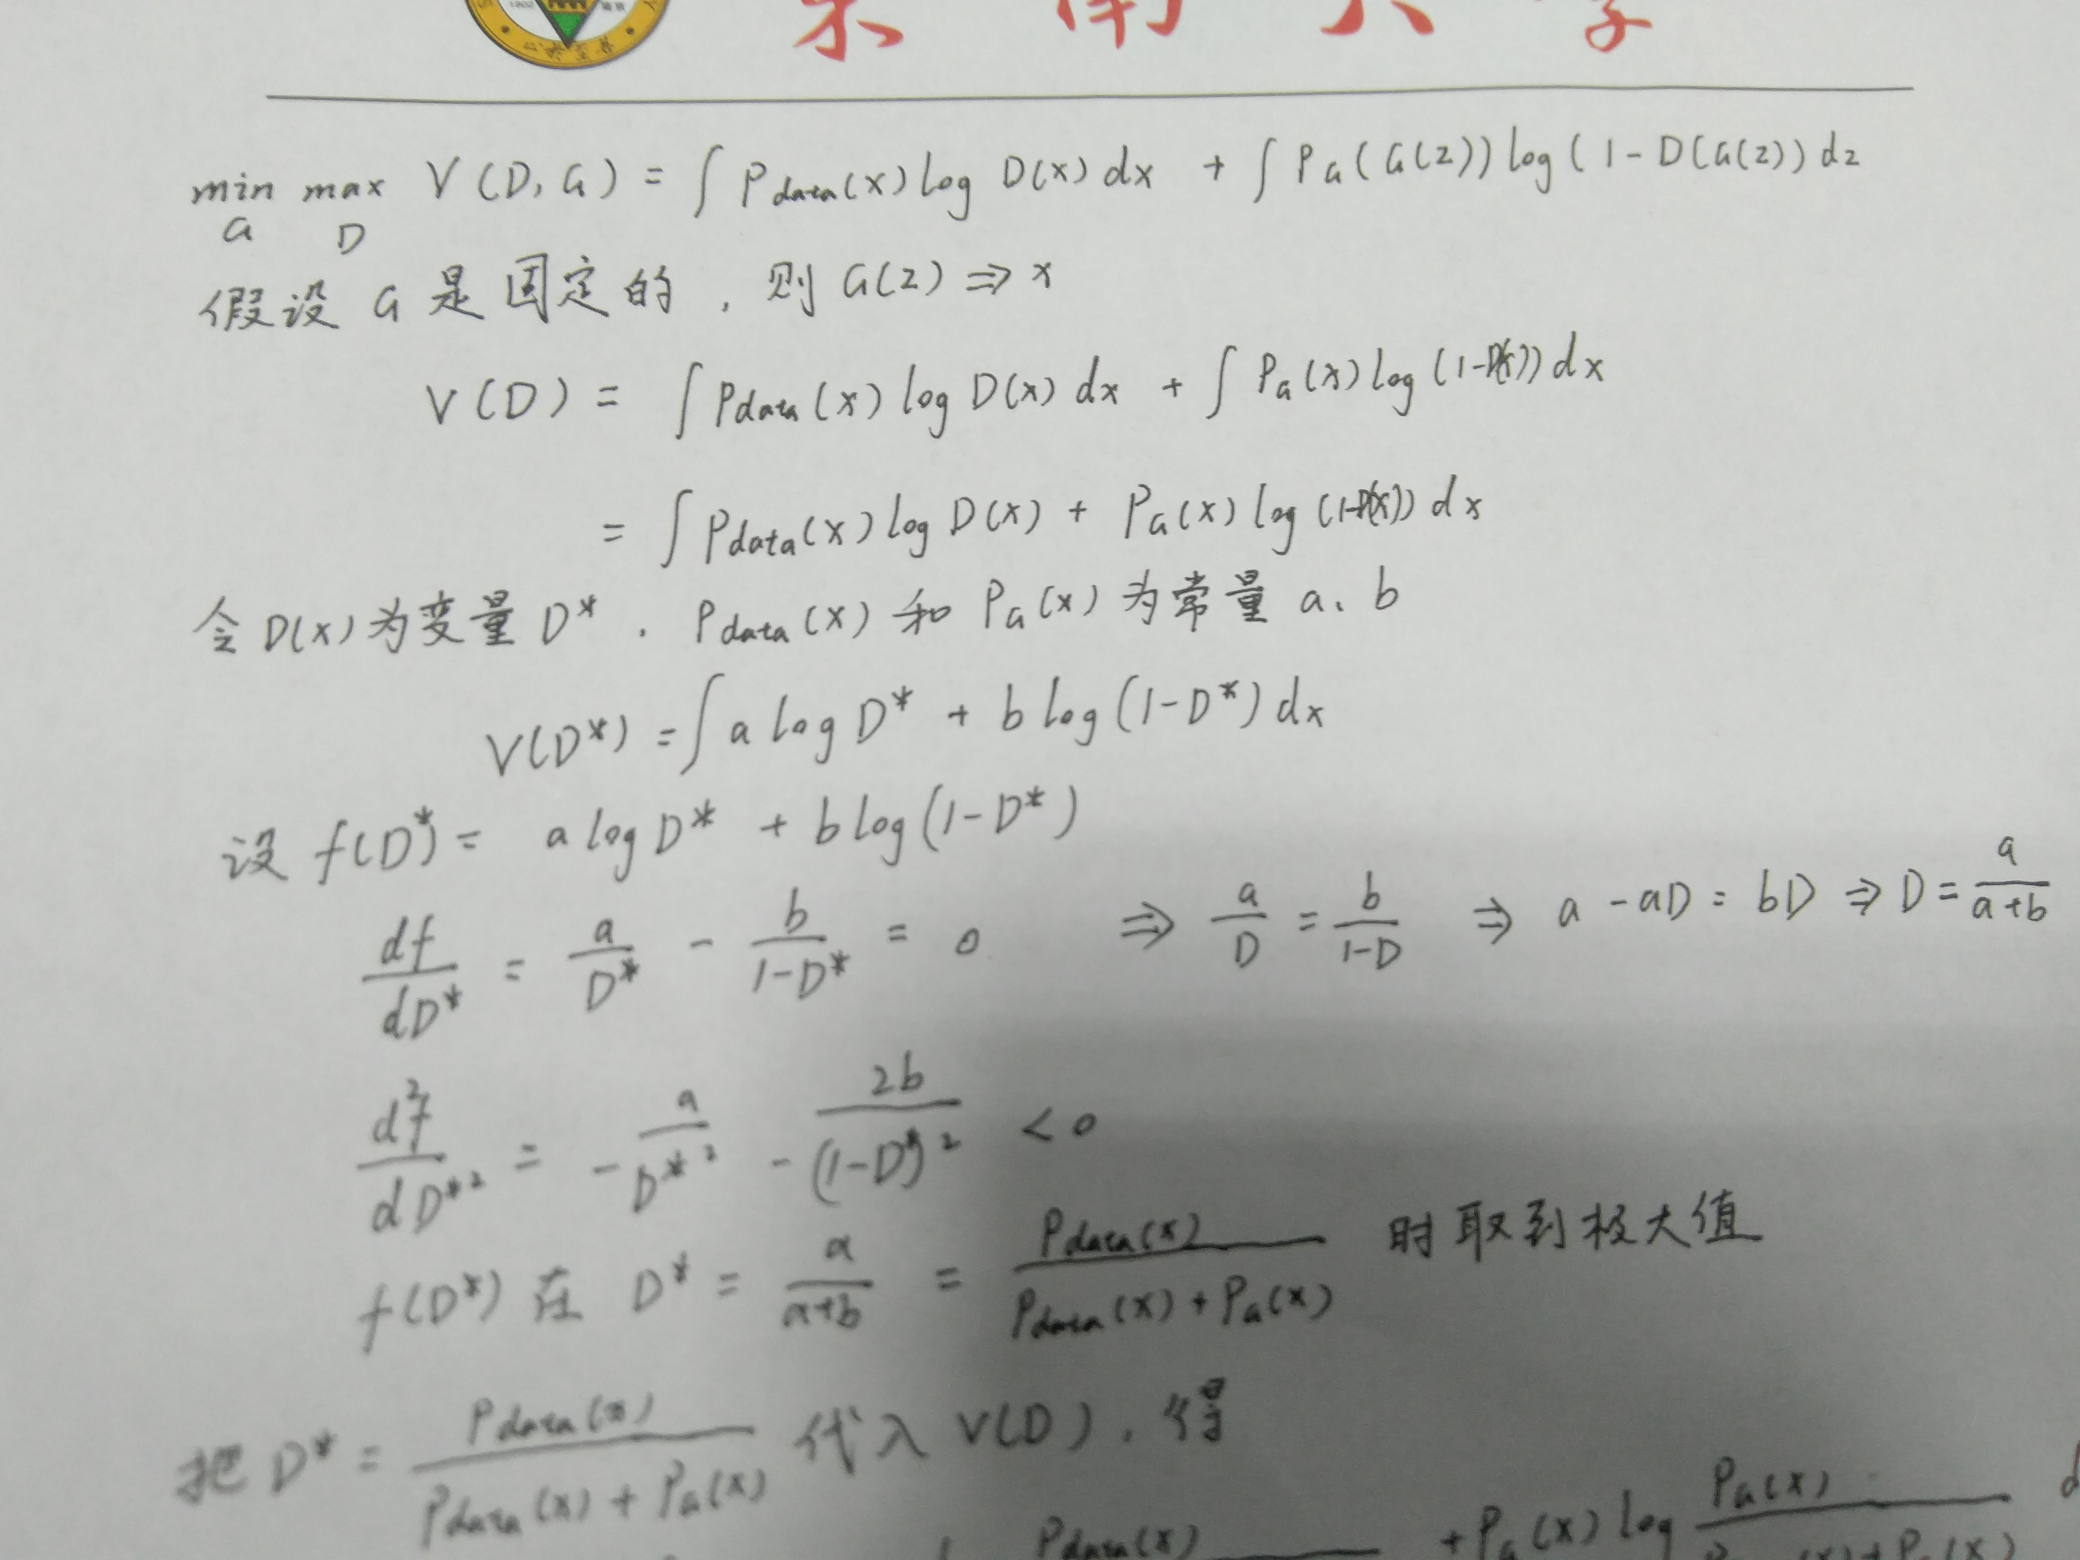 1902 南京
東南大学
min max V(D,G) = ∫ Pdata(x) log D(x) dx + ∫ PG(G(z)) log(1-D(G(z)) dz
G D
假设 G 是固定的，则 G(z) ⇒ x
V(D) = ∫ Pdata(x) log D(x) dx + ∫ PG(x) log(1-D(x)) dx
= ∫ Pdata(x) log D(x) + PG(x) log(1-D(x)) dx
令 D(x) 为变量 D*. Pdata(x) 和 PG(x) 为常量 a、b
V(D*) = ∫ a log D* + b log(1-D*) dx
设 f(D*) = a log D* + b log(1-D*)
df/dD* = a/D* - b/(1-D*) = 0 ⇒ a/D = b/(1-D) ⇒ a - aD = bD ⇒ D = a/(a+b)
d²f/dD*² = -a/D*² - 2b/(1-D*)² < 0
f(D*) 在 D* = a/(a+b) = Pdata(x)/(Pdata(x)+PG(x)) 时取到极大值
把 D* = Pdata(x)/(Pdata(x)+PG(x)) 代入 V(D), 得
Pdata(x) + PG(x) log PG(x)